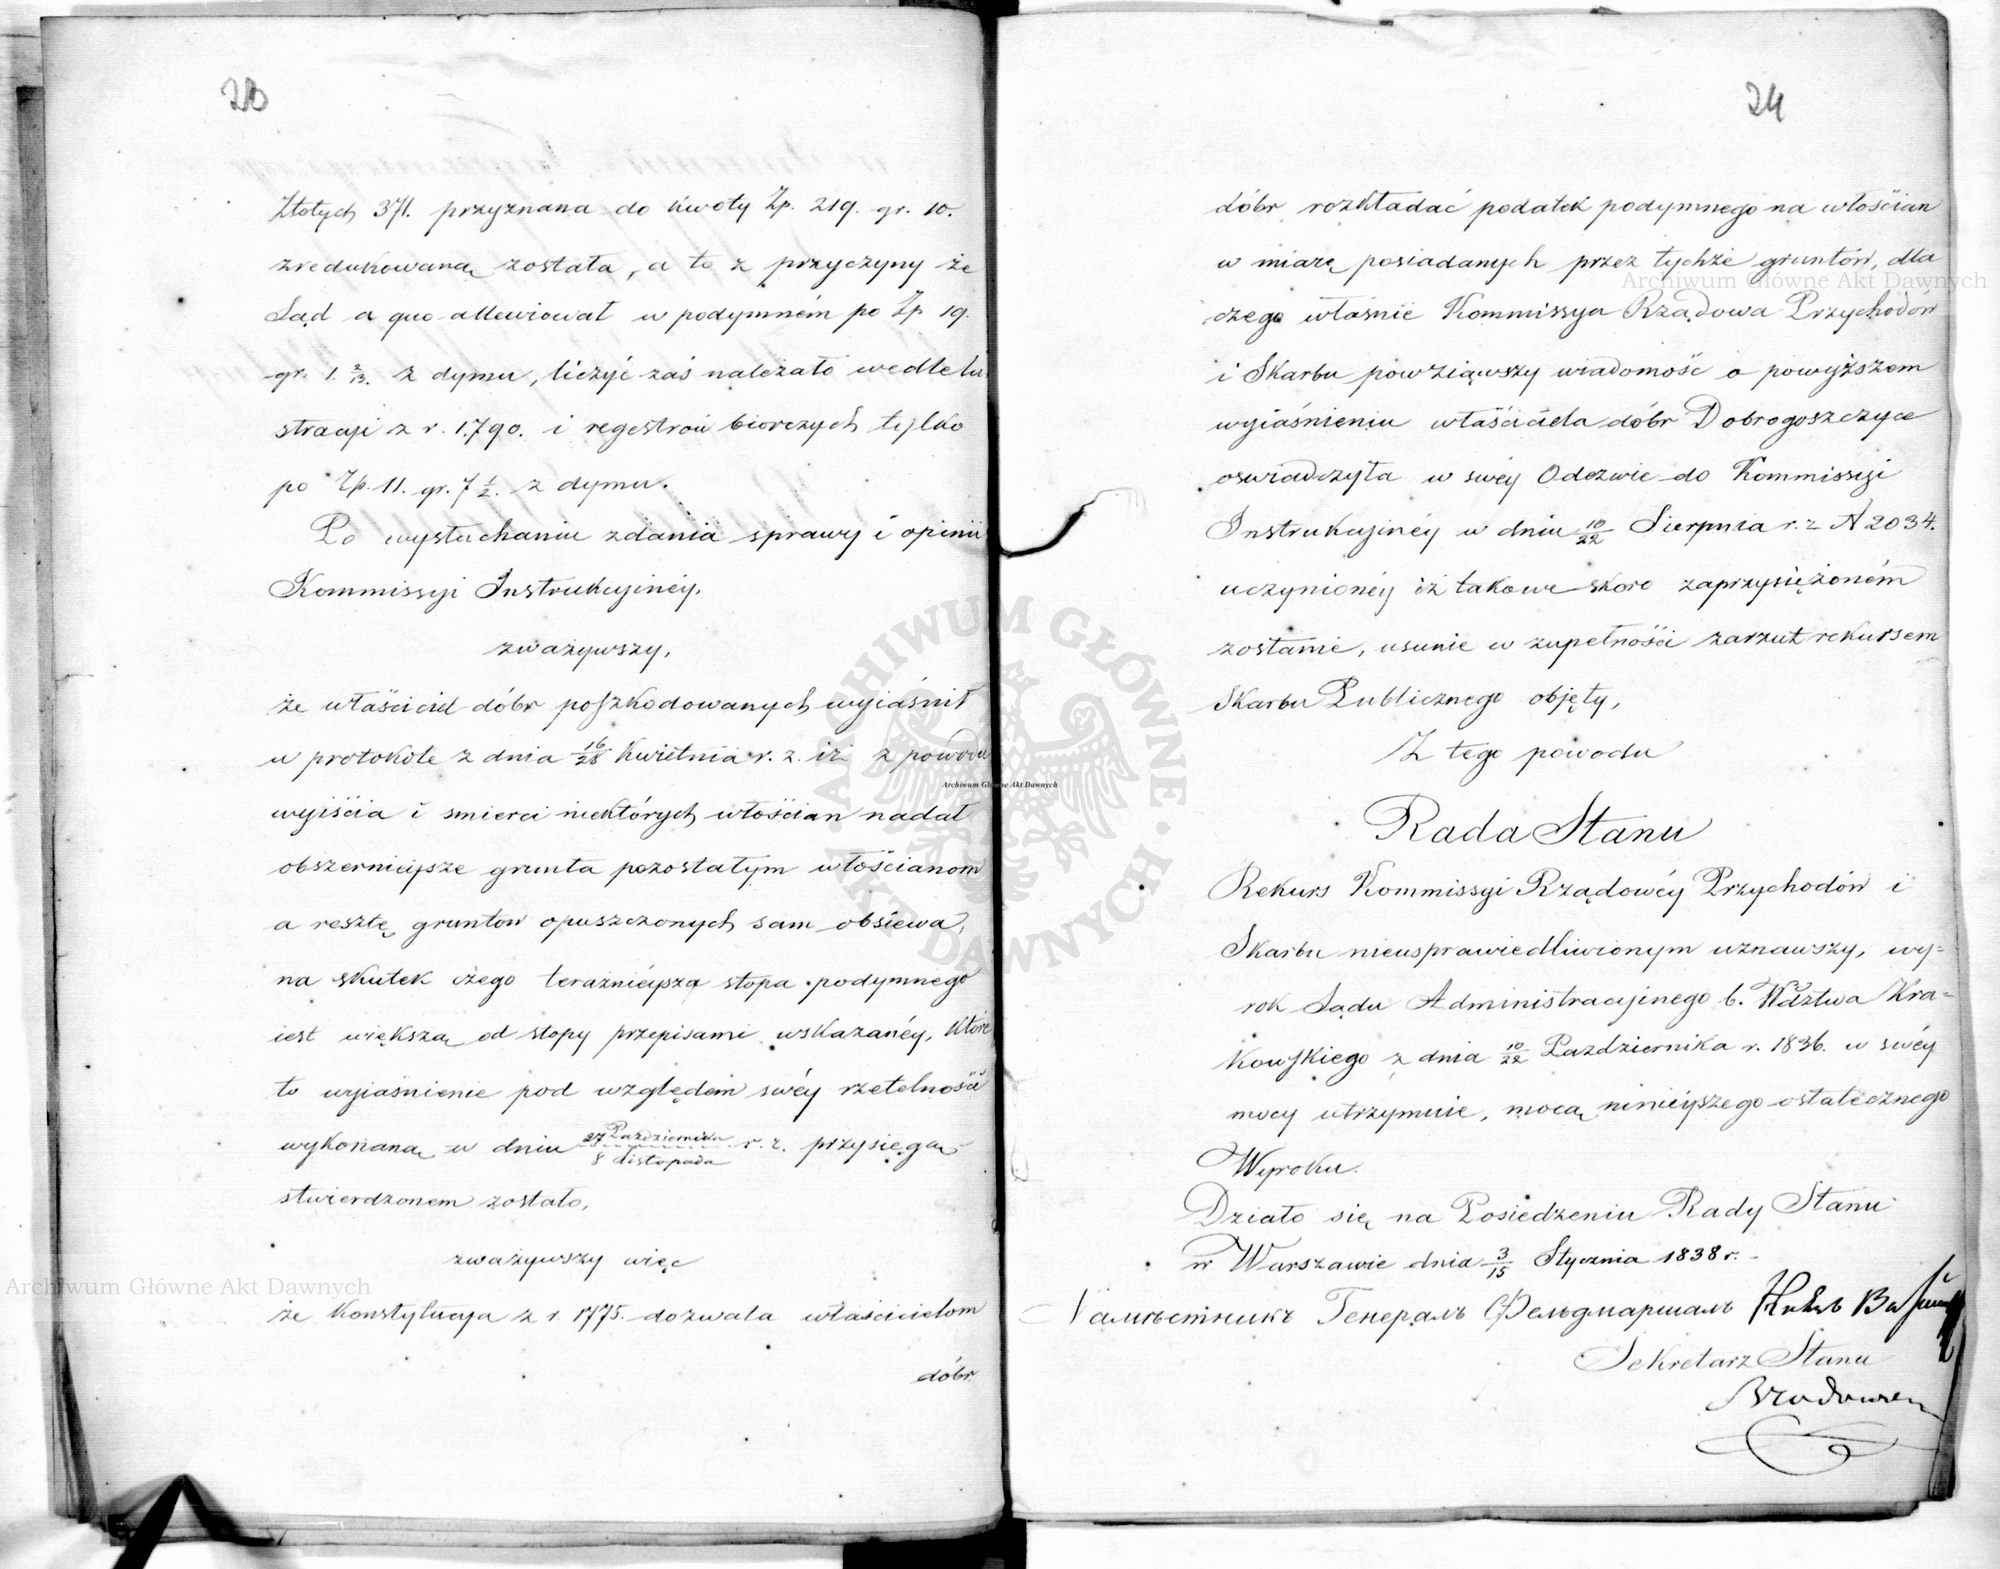 23
Złotych 371. przyznana do kwoty Zp. 219. gr. 10.
zredukowaną została, a to z przyczyny że
Sąd a quo allewiował w podymném po Zp 19.
gr. 1. 2/13. z dymu, liczyć zaś należało wedle lu-
stracyi z r. 1790. i regestrów biorczych tylko
po Zp. 11. gr. 7 1/2. z dymu.
Po wysłuchaniu zdania sprawy i opinii
Kommissyi Instrukcyinéy,
zważywszy,
że właściciel dóbr poszkodowanych wyiaśnił
w protokole z dnia 16/28 Kwietnia r. z. iż z powodu
wyiścia i smierci niektórych włościan nadał
obszernieysze grunta pozostałym włościanom
a resztę gruntów opuszczonych sam obsiewa,
na skutek czego teraźnieysza stopa podymnego
iest większą od stopy przepisami wskazanéy, które
to wyiaśnienie pod względem swéy rzetelności
wykonaną w dniu 27 Października / 8 Listopada r. z. przysięgą
stwierdzonem zostało,
zważywszy więc
że Konstytucya z r. 1775. dozwala właścicielom
dóbr
24
dóbr rozkładać podatek podymnego na włościan
w miarę posiadanych przez tychże gruntów, dla
czego właśnie Kommissya Rządowa Przychodów
i Skarbu powziąwszy wiadomość o powyższem
wyiaśnieniu właściciela dóbr Dobrogoszczyce
oswiadczyła w swéy Odezwie do Kommissyi
Instrukcyinéy w dniu 10/22 Sierpnia r. z. N 2034.
uczynionéy iż takowe skoro zaprzysiężoném
zostanie, usunie w zupełności zarzut rekursem
Skarbu Publicznego objęty,
Z tego powodu
Rada Stanu
Rekurs Kommissyi Rządowéy Przychodów i
Skarbu nieusprawiedliwionym uznawszy, wy=
rok Sądu Administracyjnego b. Wdztwa Kra=
kowskiego z dnia 10/22 Pazdziernika r. 1836. w swéy
mocy utrzymuie, mocą ninieyszego ostatecznego
Wyroku.
Działo się na Posiedzeniu Rady Stanu
w Warszawie dnia 3/15 Stycznia 1838 r.
Намѣстникъ Генералъ Фельдмаршалъ
Sekretarz Stanu
Archiwum Główne Akt Dawnych
Archiwum Główne Akt Dawnych
Archiwum Główne Akt Dawnych
ARCHIWUM GŁÓWNE · AKT DAWNYCH ·